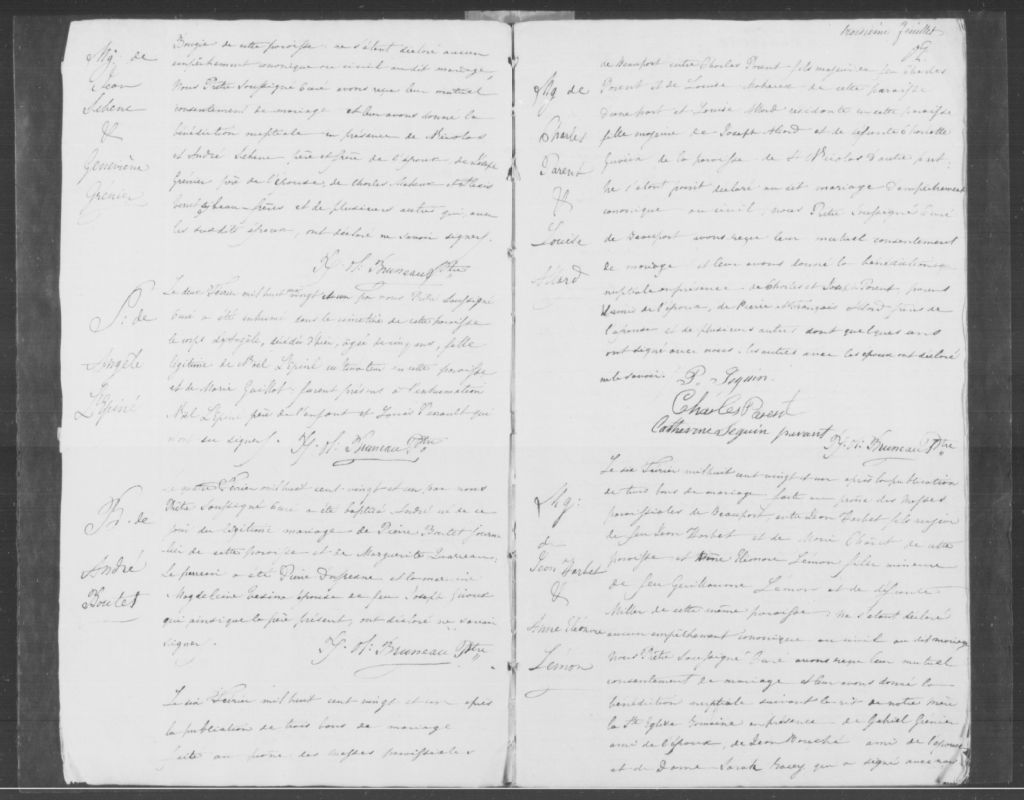 Mg: de
Jean
&
Geneviève
Grénier
de cette paroisse ne s'étant déclaré aucun
empêchement canonique ou civil au dit mariage,
Nous Prêtre Soussigné Curé avons reçu leur mutuel
consentement de mariage et leur avons donné la
bénédiction nuptiale en présence de Nicolas
et André père et frère de l'époux, de Joseph
Grénier père de l'épouse, de Charles
frères et de plusieurs autres qui, avec
les susdits époux, ont déclaré ne savoir signer.
Bruneau Ptre
S: de
Angèle
L'Epiné
Le deux Février mil huit cent vingt et un par nous Prêtre Soussigné
Curé a été inhumé dans le cimetière de cette paroisse
le corps d'Angèle, décédée d'hier, agée de cinq ans, fille
légitime de Noël L'Epiné cultivateur en cette paroisse
et de Marie Guillot. furent présens à l'inhumation
Noël L'Epiné père de l'enfant et Louis qui
n'ont su signer. Bruneau Ptre
B. de
André
Boutet
Février mil huit cent vingt et un par nous
Prêtre Soussigné Curé a été baptisé André né de ce
jour du légitime mariage de Pierre Boutet
de cette paroisse et de Marguerite
Le parrain a été Pierre Dufresne et la marraine
Magdeleine épouse de feu Joseph Giroux
qui ainsi que le père présent, ont déclaré ne savoir
signer. Bruneau Ptre
Le six Février mil huit cent vingt et un après
la publication de trois bans de mariage
faite au prône des messes paroissiales
troisième feuillet
Mg de
Charles
Parent
&
Louise
Allard
de Beauport entre Charles Parent fils majeur de feu Charles
Parent et de Louise de cette paroisse
d'une part et Louise Allard résidante en cette paroisse
fille majeure de Joseph Allard et de défunte Charlotte
de la paroisse de St Nicolas d'autre part:
ne s'étant point déclaré au dit mariage d'empêchement
canonique ou civil, nous Prêtre Soussigné Curé
de Beauport avons reçu leur mutuel consentement
de mariage et leur avons donné la bénédiction
nuptiale en présence de Charles et Joseph Parent
amis de l'époux, de Pierre et François Allard frères de
l'épouse et de plusieurs autres dont quelques uns
ont signé avec nous. les autres avec les époux ont déclaré
ne le savoir.
Charles Parent
Catherine Seguin parant Bruneau Ptre
Mg:
de
Jean Harbet
&
Anne Eléonore
Lémon
Le six Février mil huit cent vingt et un après la publication
de trois bans de mariage faite au prône des Messes
paroissiales de Beauport entre Jean Harbet fils majeur
de feu Jean Harbet et de Marie de cette
paroisse et Anne Eléonore Lémon fille mineure
de feu Guillaume Lémon et de défunte
Miller de cette même paroisse: ne s'étant déclaré
aucun empêchement canonique ou civil au dit mariage
Nous Prêtre Soussigné Curé avons reçu leur mutuel
consentement de mariage et leur avons donné la
bénédiction nuptiale suivant le rit de notre mère
la Ste Eglise Romaine en présence de Gabriel Grénier
ami de l'époux, de Jean Bouché ami de l'épouse
et de Dame Sarah qui a signé avec nous